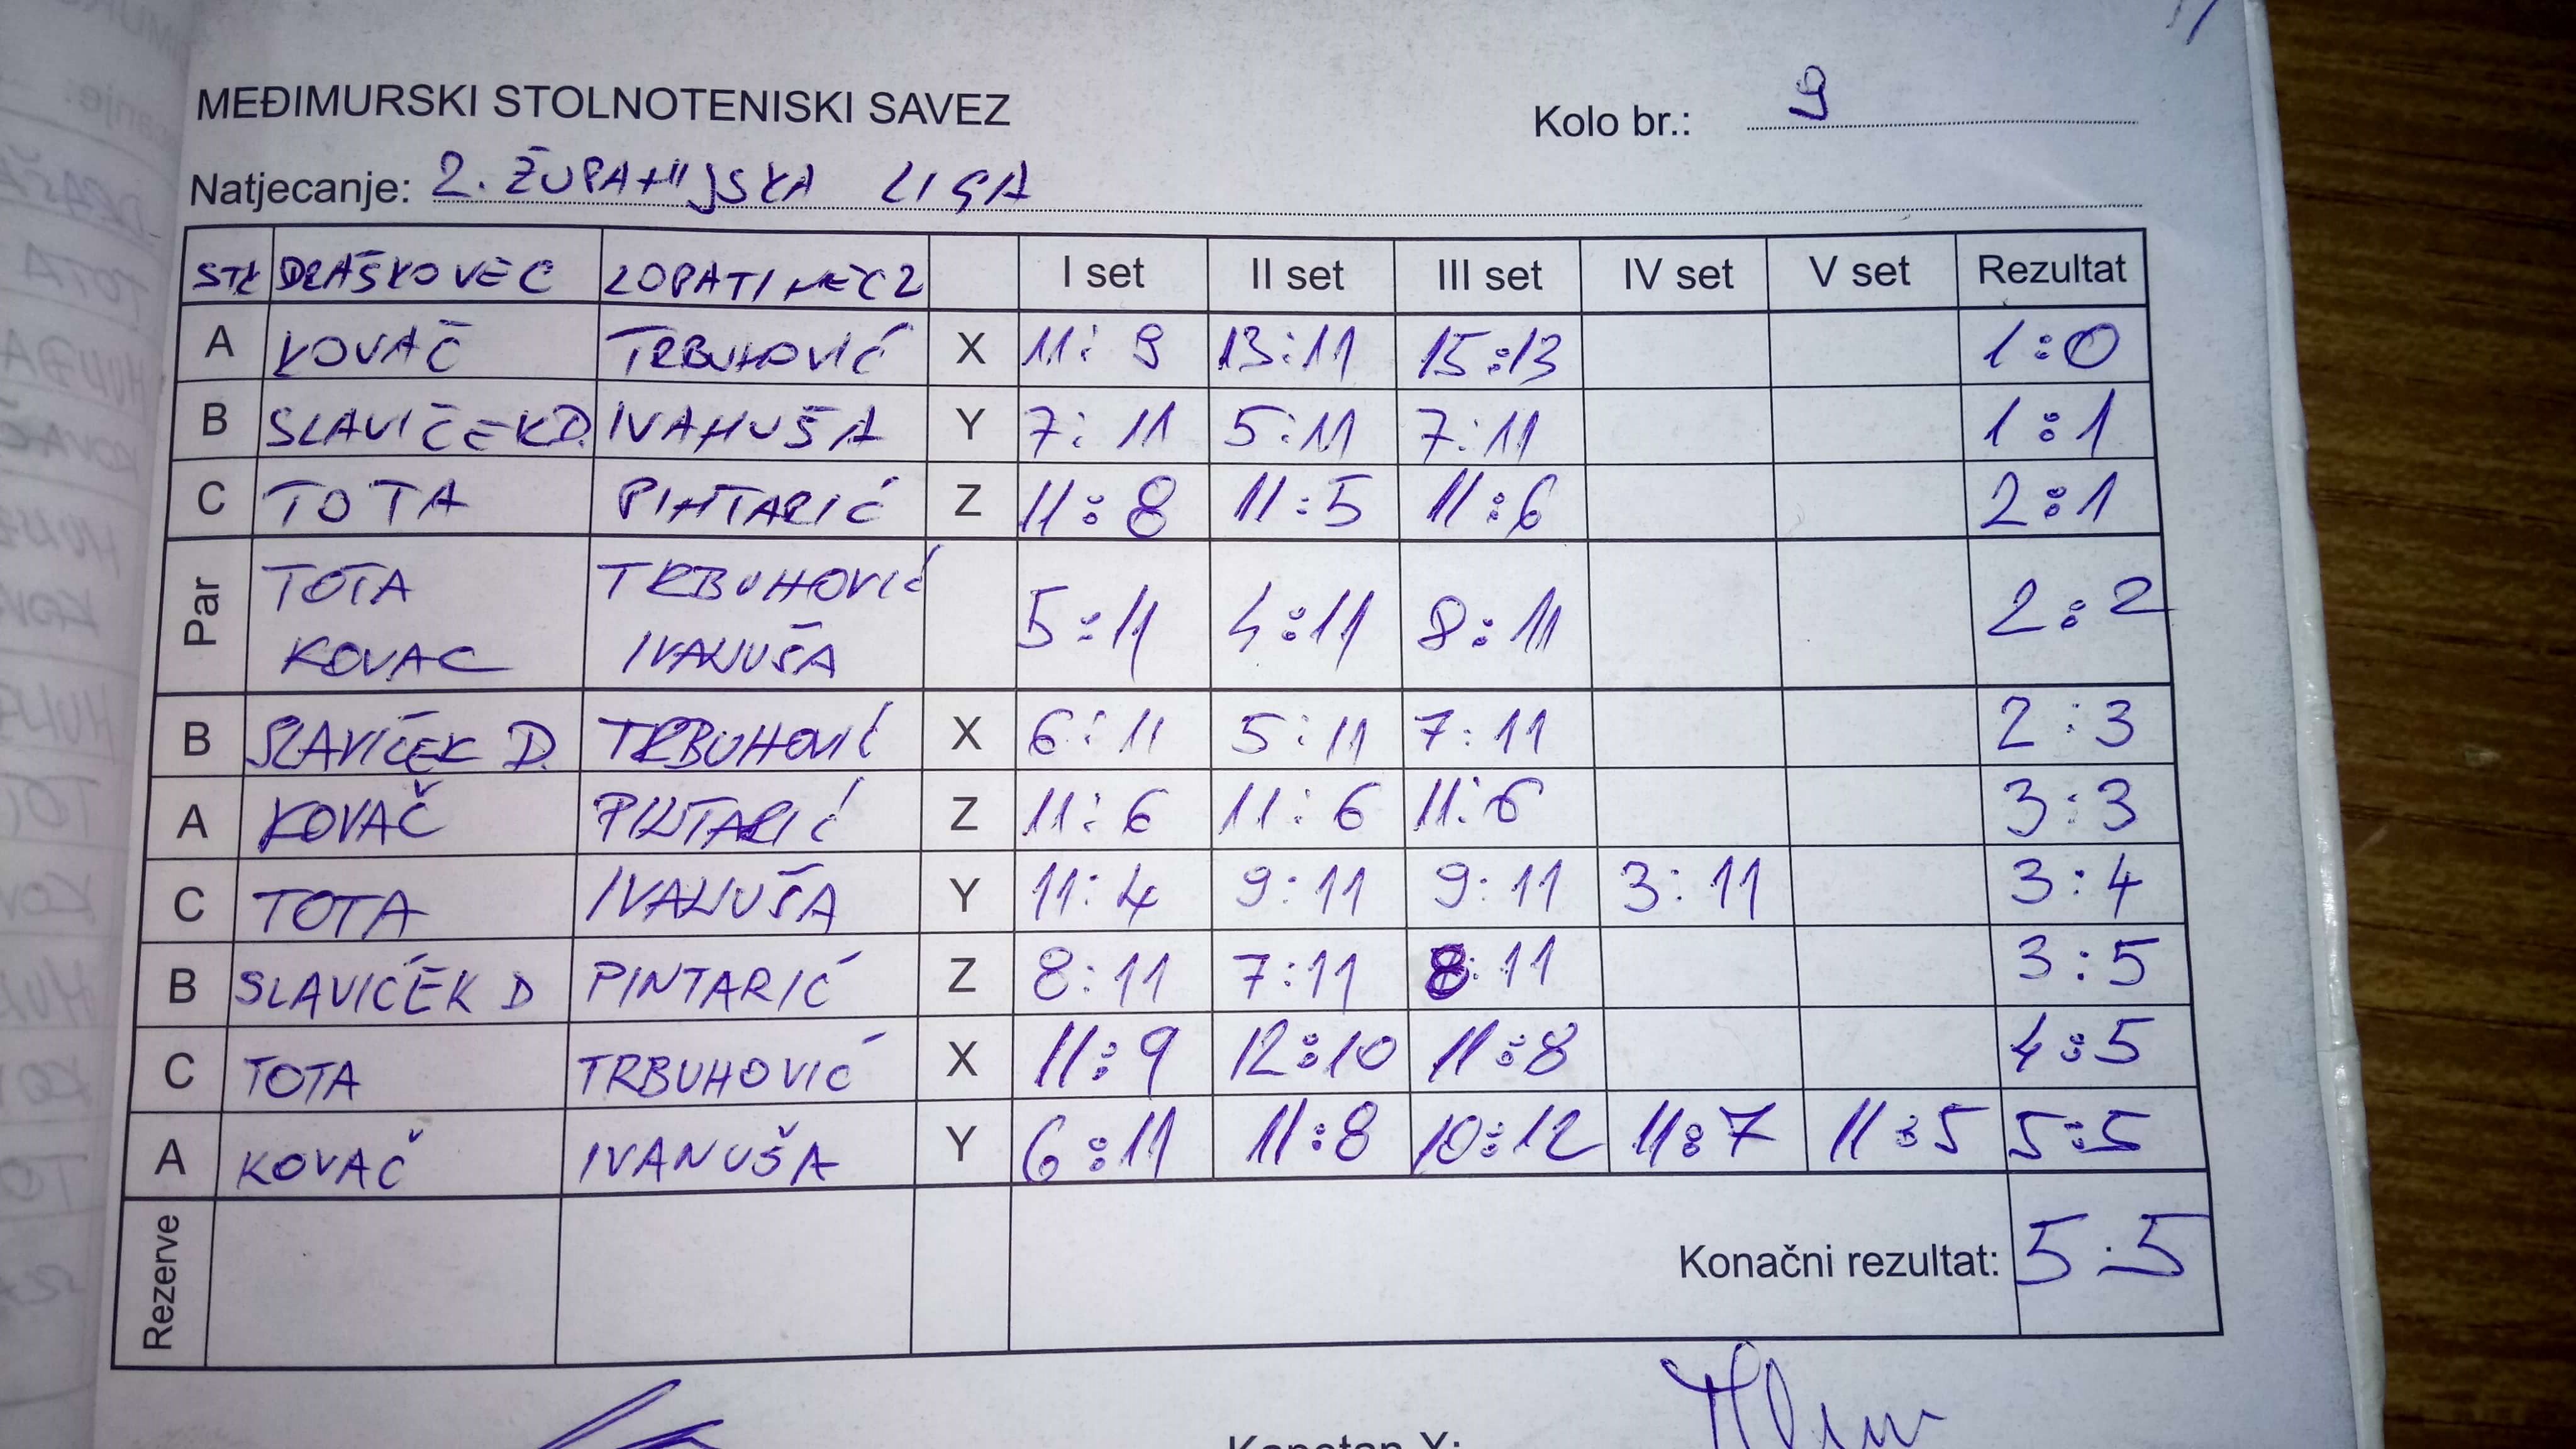 MEĐIMURSKI STOLNOTENISKI SAVEZ
Kolo br.: 9
Natjecanje: 2. ŽUPANIJSKA LIGA
STK DRAŠKOVEC LOPATINEC 2 I set II set III set IV set V set Rezultat
A KOVAČ TRBUHOVIĆ X 11:9 13:11 15:13 1:0
B SLAVIČEK D. IVANUŠA Y 7:11 5:11 7:11 1:1
C TOTA PINTARIĆ Z 11:8 11:5 11:6 2:1
Par TOTA TRBUHOVIĆ 5:11 4:11 8:11 2:2
KOVAC IVANUŠA
B SLAVIČEK D. TRBUHOVIĆ X 6:11 5:11 7:11 2:3
A KOVAČ PINTARIĆ Z 11:6 11:6 11:6 3:3
C TOTA IVANUŠA Y 11:4 9:11 9:11 3:11 3:4
B SLAVIČEK D PINTARIĆ Z 8:11 7:11 8:11 3:5
C TOTA TRBUHOVIĆ X 11:9 12:10 11:8 4:5
A KOVAČ IVANUŠA Y 6:11 11:8 10:12 11:7 11:5 5:5
Rezerve Konačni rezultat: 5:5